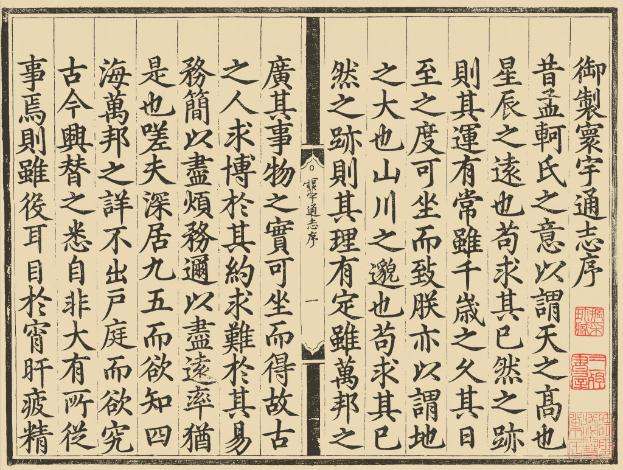 御製寰宇通志序
昔孟軻氏之意以謂天之高也
星辰之遠也苟求其已然之跡
則其運有常雖千歲之久其日
至之度可坐而致朕亦以謂地
之大也山川之邈也苟求其已
然之跡則其理有定雖萬邦之
寰宇通志序
一
廣其事物之實可坐而得故古
之人求博於其約求難於其易
務簡以盡煩務邇以盡遠率猶
是也嗟夫深居九五而欲知四
海萬邦之詳不出戶庭而欲究
古今興替之悉自非大有所從
事焉則雖後耳目於宵旰疲精